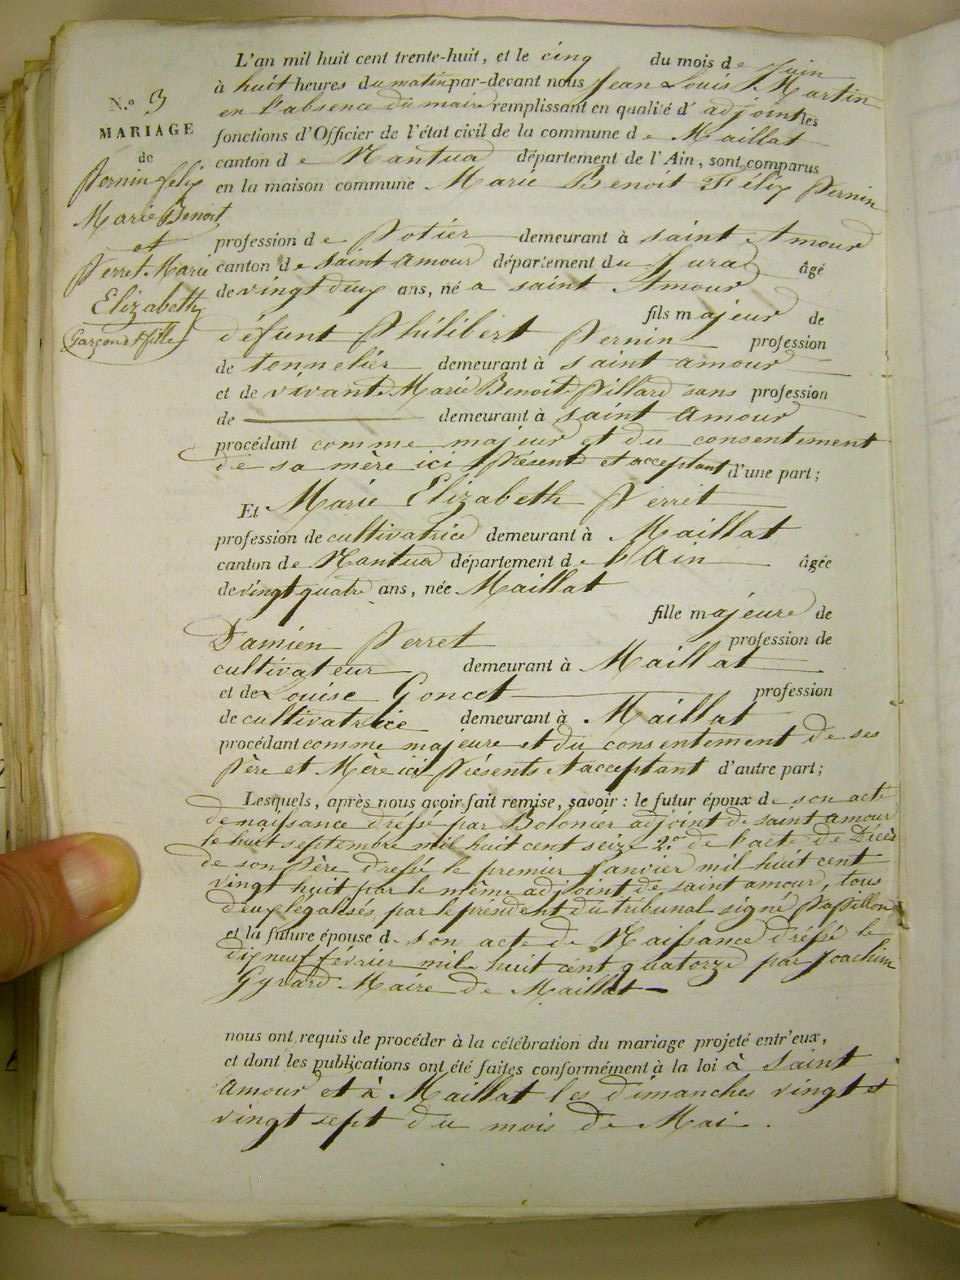 N.º 3
MARIAGE
de
Pernin felix
Marie Benoit
et
Perret Marie
Elizabeth
Garçon et fille
L'an mil huit cent trente-huit, et le cinq du mois de Juin
à huit heures du matin par-devant nous Jean Louis Martin
en l'absence du maire remplissant en qualité d'adjoint les
fonctions d'Officier de l'état civil de la commune de Maillat
canton de Nantua département de l'Ain, sont comparus
en la maison commune Marie Benoit Félix Pernin
profession de Potier demeurant à saint Amour
canton de saint amour département du Jura âgé
de vingt deux ans, né a saint Amour
fils majeur de
défunt Philibert Pernin profession
de tonnelier demeurant à saint amour
et de vivante Marie Benoite Pillard sans profession
de demeurant à saint Amour
procédant comme majeur et du consentement
de sa mère ici présente et acceptant d'une part;
Et Marie Elizabeth Perret
profession de cultivatrice demeurant à Maillat
canton de Nantua département de l'Ain âgée
de vingt quatre ans, née Maillat
fille majeure de
Damien Perret profession de
cultivateur demeurant à Maillat
et de Louise Goncet profession
de cultivatrice demeurant à Maillat
procédant comme majeure et du consentement de ses
Père et Mère ici présents et acceptant d'autre part;
Lesquels, après nous avoir fait remise, savoir: le futur époux de son acte
de naissance dréssé par Bolomier adjoint de saint amour
le huit septembre mil huit cent seize 2.º de l'acte de Décès
de son Père dréssé le premier Janvier mil huit cent
vingt huit par le même adjoint de saint amour, tous
deux légalisés par le président du tribunal signé Papillon
et la future épouse de son acte de Naissance dréssé le
dix neuf février mil huit cent quatorze par Joachim
Gyrard Maire de Maillat
nous ont requis de procéder à la célébration du mariage projeté entr'eux,
et dont les publications ont été faites conformément à la loi à Saint
Amour et à Maillat les dimanches vingt et
vingt sept du mois de Mai.